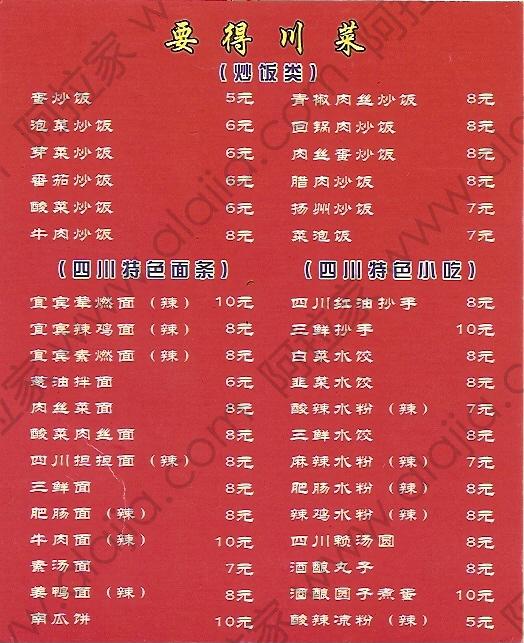 要得川菜
（炒饭类）
蛋炒饭 5元
泡菜炒饭 6元
芽菜炒饭 6元
番茄炒饭 6元
酸菜炒饭 6元
牛肉炒饭 8元
青椒肉丝炒饭 8元
回锅肉炒饭 8元
肉丝蛋炒饭 8元
腊肉炒饭 8元
扬州炒饭 7元
菜泡饭 7元
（四川特色面条）
宜宾荤燃面（辣） 10元
宜宾辣鸡面（辣） 8元
宜宾素燃面（辣） 8元
葱油拌面 6元
肉丝菜面 8元
酸菜肉丝面 8元
四川担担面（辣） 8元
三鲜面 8元
肥肠面（辣） 8元
牛肉面（辣） 10元
素汤面 7元
姜鸭面（辣） 8元
南瓜饼 10元
（四川特色小吃）
四川红油抄手 8元
三鲜抄手 10元
白菜水饺 8元
韭菜水饺 8元
酸辣水粉（辣） 7元
三鲜水饺 8元
麻辣水粉（辣） 7元
肥肠水粉（辣） 8元
辣鸡水粉（辣） 8元
四川赖汤圆 8元
酒酿丸子 8元
酒酿圆子煮蛋 10元
酸辣凉粉（辣） 5元
阿拉家 www.alaijia.com